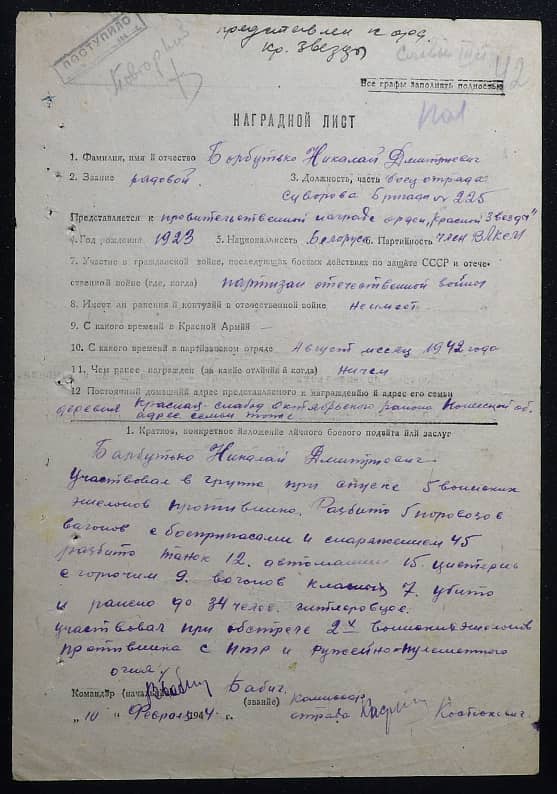 ПОСТУПИЛО
представлен к орд.
Кр. Звезды
42
Все графы заполнять полностью
НАГРАДНОЙ ЛИСТ
1. Фамилия, имя и отчество Барбутько Николай Дмитриевич
2. Звание рядовой 3. Должность, часть боец отряда
Суворова Бригады 225
Представляется к правительственной награде орден „Красной Звезды"
4. Год рождения 1923 5. Национальность Белорус 6. Партийность член ВЛКСМ
7. Участие в гражданской войне, последующих боевых действиях по защите СССР и отече-
ственной войне (где, когда) партизан отечественной войны
8. Имеет ли ранения и контузии в отечественной войне не имеет
9. С какого времени в Красной Армии —
10. С какого времени в партизанском отряде Август месяц 1942 года
11. Чем ранее награжден (за какие отличия и когда) ничем
12 Постоянный домашний адрес представляемого к награждению и адрес его семьи
деревня Красная слабода Октябрьского района Полесской об.
адрес семьи тотже
1. Краткое, конкретное изложение личного боевого подвига или заслуг
Барбутько Николай Дмитриевич
Участвовал в группе при спуске 5 воинских
эшелонов противника. Разбито 5 паровозов
вагонов с боеприпасами и снаряжением 45
разбито танок 12. автомашин 15. цистернь
с горючим 9. вагонов класных 7. убито
и ранено до 34 челов. гитлеровцов.
участвовал при обстреле 2х воинских эшелонов
противника с ПТР и ружейно-пулеметного
огня
Командир (начальник) Бабич. Комиссар
(звание) отряда Костюкевич.
„10" Февраля 1944 г.